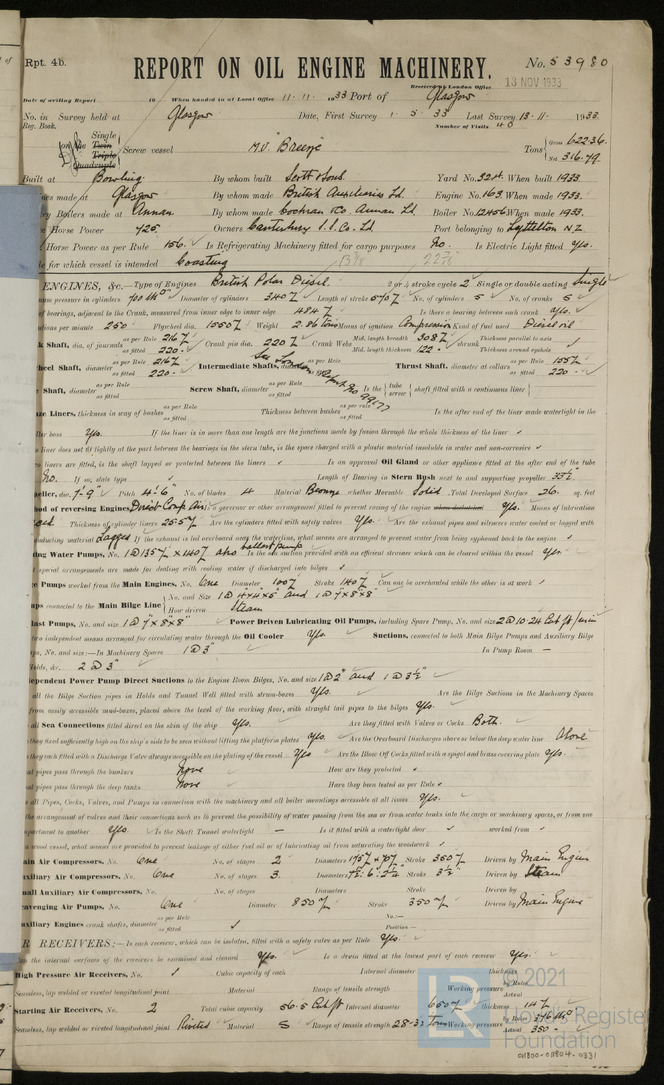 Rpt. 4b.
REPORT ON OIL ENGINE MACHINERY.
No. 53980
13 NOV 1933
Received at London Office
Date of writing Report 19 When handed in at Local Office 11·11· 1933 Port of Glasgow
No. in Survey held at Glasgow Date, First Survey 1·5·33 Last Survey 13·11· 1933
Reg. Book. Number of Visits 40
Single
on the Twin
Triple
Quadruple
Screw vessel M.V. "Breeze" Tons Gross 622.36 Net 316.79
Built at Bowling By whom built Scott & Sons Yard No. 324 When built 1933
es made at Glasgow By whom made British Auxiliaries Ld. Engine No. 163 When made 1933.
y Boilers made at Annan By whom made Cochran & Co. Annan Ld Boiler No. 12456 When made 1933.
Horse Power 725 Owners Canterbury S.S. Co. Ld Port belonging to Lyttelton N.Z
Horse Power as per Rule 156. Is Refrigerating Machinery fitted for cargo purposes No. Is Electric Light fitted Yes.
e for which vessel is intended Coasting
ENGINES, &c.—Type of Engines British Polar Diesel. 2 or 4 stroke cycle 2 Single or double acting Single
um pressure in cylinders Diameter of cylinders 340 Length of stroke 570 No. of cylinders 5 No. of cranks 5
of bearings, adjacent to the Crank, measured from inner edge to inner edge 484 Is there a bearing between each crank Yes.
utions per minute 250 Flywheel dia. 1550 Weight 2.86 tons Means of ignition Compression Kind of fuel used Diesel oil
k Shaft, dia. of journals as per Rule 216 as fitted 220 Crank pin dia. 220 Crank Webs Mid. length breadth 308 Mid. length thickness 122 shrunk Thickness parallel to axis Thickness around eyehole
heel Shaft, diameter as per Rule 216 as fitted 220 Intermediate Shafts, diameter as per Rule as fitted Thrust Shaft, diameter at collars as per Rule 155 as fitted 220
See London Report No 99177
e Shaft, diameter as per Rule as fitted Screw Shaft, diameter as per Rule as fitted Is the tube screw shaft fitted with a continuous liner
ze Liners, thickness in way of bushes as per Rule as fitted Thickness between bushes as per rule as fitted Is the after end of the liner made watertight in the
ller boss Yes. If the liner is in more than one length are the junctions made by fusion through the whole thickness of the liner
e liner does not fit tightly at the part between the bearings in the stern tube, is the space charged with a plastic material insoluble in water and non-corrosive
o liners are fitted, is the shaft lapped or protected between the liners Is an approved Oil Gland or other appliance fitted at the after end of the tube
No. If so, state type Length of Bearing in Stern Bush next to and supporting propeller 33½"
eller, dia. 7'-9" Pitch 4'-6" No. of blades 4 Material Bronze whether Moveable Solid Total Developed Surface 26 sq. feet
hod of reversing Engines Direct Comp. Air Is a governor or other arrangement fitted to prevent racing of the engine when declutched Yes. Means of lubrication
ced Thickness of cylinder liners 25.5 Are the cylinders fitted with safety valves Yes. Are the exhaust pipes and silencers water cooled or lagged with
conducting material Lagged If the exhaust is led overboard near the waterline, what means are arranged to prevent water from being syphoned back to the engine
ng Water Pumps, No. 1 @ 135 × 140 also ballast pump Is the sea suction provided with an efficient strainer which can be cleared within the vessel Yes.
special arrangements are made for dealing with cooling water if discharged into bilges
ge Pumps worked from the Main Engines, No. One Diameter 100 Stroke 140 Can one be overhauled while the other is at work
mps connected to the Main Bilge Line No. and Size 1 @ 4"×4"×5" and 1 @ 7"×8"×8" How driven Steam
last Pumps, No. and size 1 @ 7"×8"×8" Power Driven Lubricating Oil Pumps, including Spare Pump, No. and size 2 @ 10.24 Cub ft/min
two independent means arranged for circulating water through the Oil Cooler Yes. Suctions, connected to both Main Bilge Pumps and Auxiliary Bilge
ps, No. and size:—In Machinery Spaces 1 @ 3" In Pump Room —
Holds, &c. 2 @ 3"
ependent Power Pump Direct Suctions to the Engine Room Bilges, No. and size 1 @ 2" and 1 @ 3½"
all the Bilge Suction pipes in Holds and Tunnel Well fitted with strum-boxes Yes. Are the Bilge Suctions in the Machinery Spaces
from easily accessible mud-boxes, placed above the level of the working floor, with straight tail pipes to the bilges Yes.
all Sea Connections fitted direct on the skin of the ship Yes. Are they fitted with Valves or Cocks Both.
they fixed sufficiently high on the ship's side to be seen without lifting the platform plates Yes. Are the Overboard Discharges above or below the deep water line Above
they each fitted with a Discharge Valve always accessible on the plating of the vessel Yes Are the Blow Off Cocks fitted with a spigot and brass covering plate Yes.
at pipes pass through the bunkers None How are they protected
at pipes pass through the deep tanks None Have they been tested as per Rule
all Pipes, Cocks, Valves, and Pumps in connection with the machinery and all boiler mountings accessible at all times Yes.
he arrangement of valves and their connections such as to prevent the possibility of water passing from the sea or from water tanks into the cargo or machinery spaces, or from one
partment to another Yes. Is the Shaft Tunnel watertight — Is it fitted with a watertight door worked from
a wood vessel, what means are provided to prevent leakage of either fuel oil or of lubricating oil from saturating the woodwork
ain Air Compressors, No. One No. of stages 2 Diameters Stroke 350 Driven by Main Engine
uxiliary Air Compressors, No. One No. of stages 3. Diameters Stroke 3½" Driven by Steam
mall Auxiliary Air Compressors, No. No. of stages Diameters Stroke Driven by
cavenging Air Pumps, No. One Diameter 850 Stroke 350 Driven by Main Engine
uxiliary Engines crank shafts, diameter as per Rule as fitted No.— Position—
R RECEIVERS:—Is each receiver, which can be isolated, fitted with a safety valve as per Rule Yes.
Can the internal surfaces of the receivers be examined and cleaned Yes. Is a drain fitted at the lowest part of each receiver Yes.
High Pressure Air Receivers, No. Cubic capacity of each Internal diameter thickness
Seamless, lap welded or riveted longitudinal joint Material Range of tensile strength Working pressure by Rules Actual
Starting Air Receivers, No. 2 Total cubic capacity 56.5 Cub ft Internal diameter 660 thickness 14
Seamless, lap welded or riveted longitudinal joint Riveted Material S Range of tensile strength 28-32 Tons Working pressure by Rules 376 Actual 350
LR
© 2021
Lloyd's Register
Foundation
011800-011804-0331